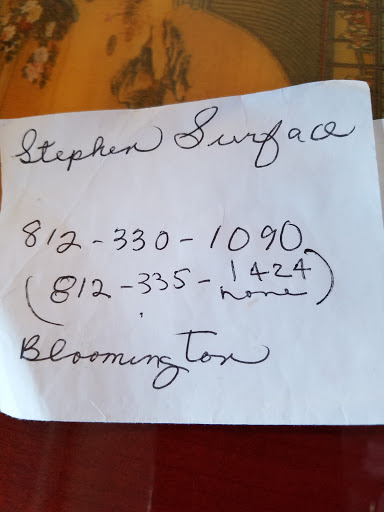 Stephen Surface
812-330-1090
(812-335-1424)
home
Bloomington